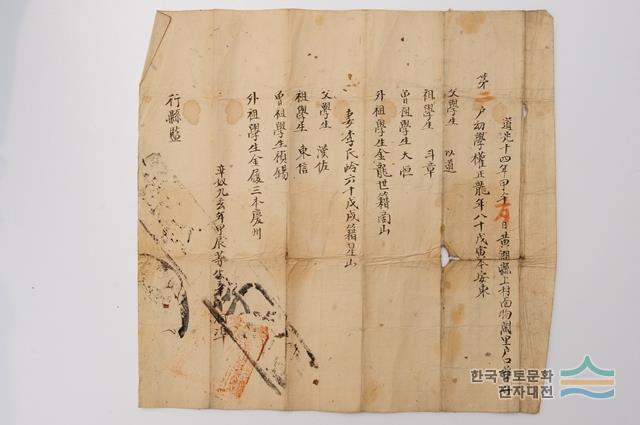 道光十四年甲午 月 日黃澗縣上村面物閑里戶口單子
第二戶幼學權正龍年八十戊寅本安東
父學生 以道
祖學生 斗章
曾祖學生大恒
外祖學生金龍世籍商山
妻李氏齡六十戊戌籍星山
父學生 漢佐
祖學生 東信
曾祖學生禎錫
外祖學生金履三本慶州
辛奴九玄年甲辰等
行縣監
한국향토문화
전자대전